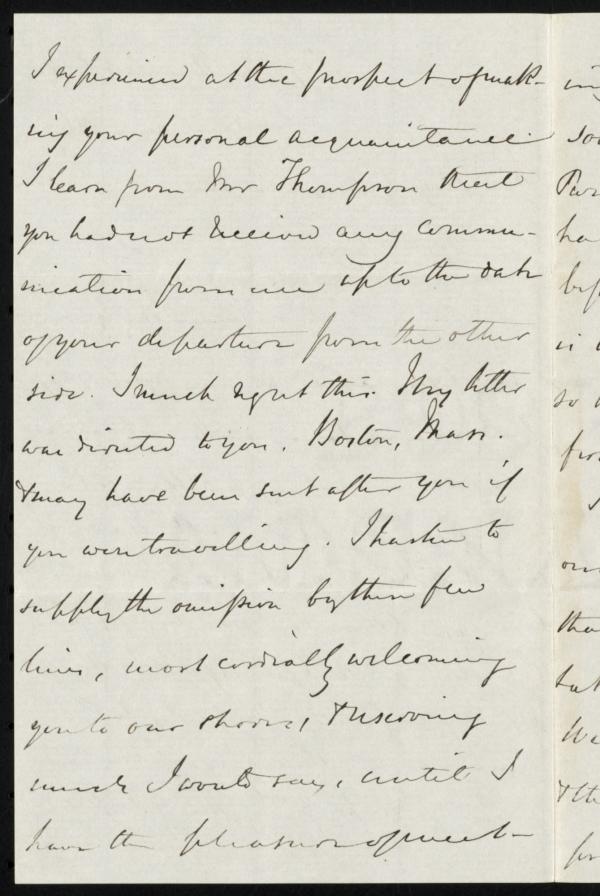 I experienced at the prospect of mak-
ing your personal acquaintance.
I learn from Mr Thompson that
you had not received any commu-
nication from me up to the date
of your departure from the other
side. I much regret this. My letter
was directed to you, Boston, Mass.,
& may have been sent after you if
you were travelling. I hasten to
supply the omission by these few
lines, most cordially welcoming
you to our shores, & reserving
much I would say, until I
have the pleasure of meet-